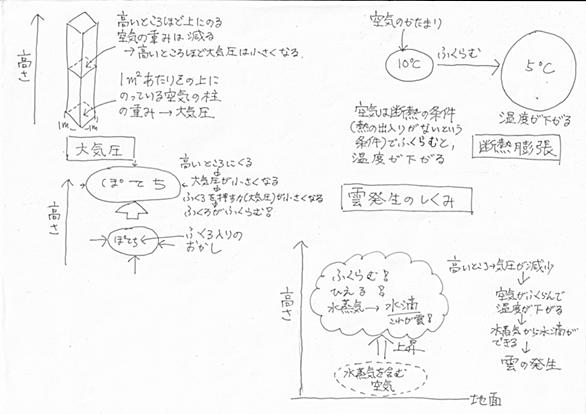 高さ
高いところほど上にのる
空気の重みは減る
→高いところほど大気圧は小さくなる.
1m²あたり1つの上に
のっている空気の柱
の重み→大気圧
1m 1m
大気圧
高さ
ぽてち
ぽてち
高いところにくる
大気圧が小さくなる
ふくろを押す力(大気圧)が小さくなる
ふくろがふくらむ!
ふくろ入りの
おかし
空気のかたまり
10℃
ふくらむ
5℃
温度が下がる
空気は断熱の条件
(熱の出入りがないという
条件)でふくらむと,
温度が下がる
断熱膨張
雲発生のしくみ
高さ
ふくらむ!
ひえる!
水蒸気→水滴
これが雲!
上昇
水蒸気を含む
空気
地面
高いところ→気圧が減少
空気がふくらんで
温度が下がる
水蒸気から水滴が
できる
雲の発生